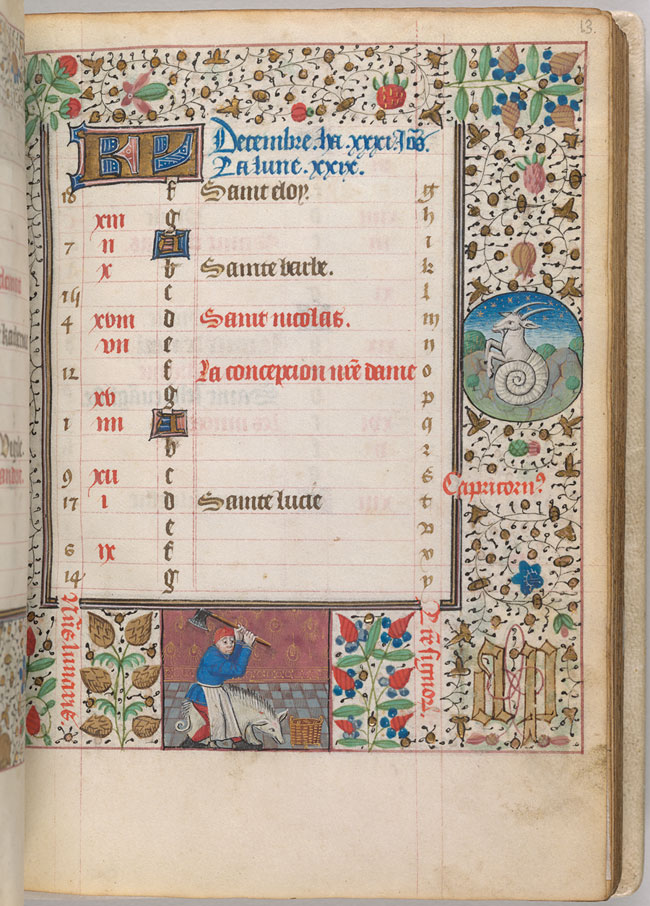 13.
KL Decembre. ha. xxxi. Jo͞s.
La lune. xxix.
18 f Saint eloy. g
xiii g h
7 ii A i
x b Sainte barbe. k
c l
4 xviii d Saint nicolas. m
vii e n
12 f La conception nr͞e dame o
xv g p
1 iiii A q
b r
9 xii c s
17 i d Sainte lucie t
e v
6 ix f v
14 g y
Capricorn⁹